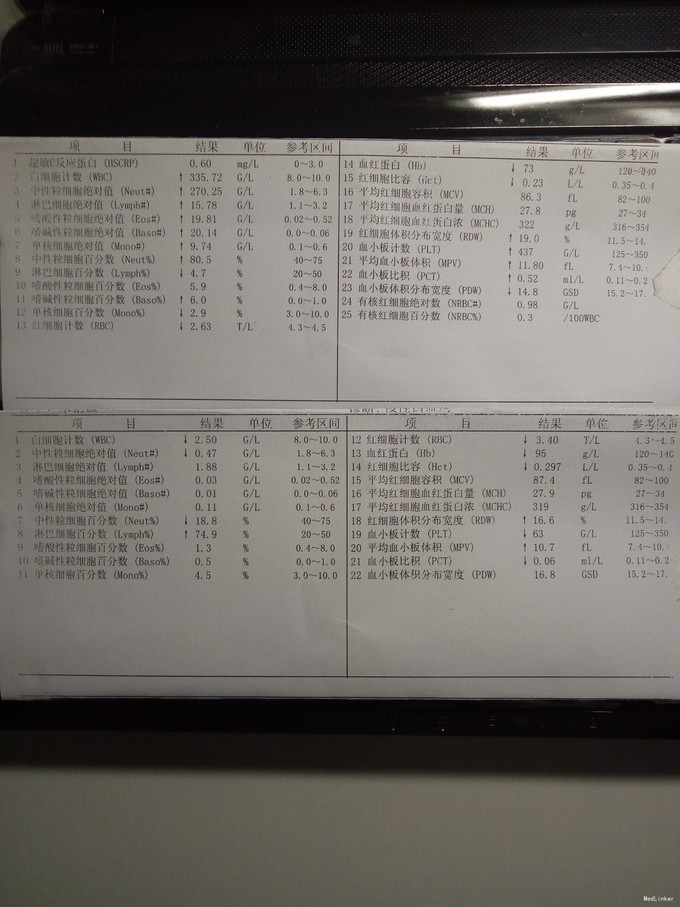 项 目 结果 单位 参考区间
1 超敏C反应蛋白 (HSCRP) 0.60 mg/L 0~3.0
2 白细胞计数 (WBC) ↑ 335.72 G/L 8.0~10.0
3 中性粒细胞绝对值 (Neut#) ↑ 270.25 G/L 1.8~6.3
4 淋巴细胞绝对值 (Lymph#) ↑ 15.78 G/L 1.1~3.2
5 嗜酸性粒细胞绝对值 (Eos#) ↑ 19.81 G/L 0.02~0.52
6 嗜碱性粒细胞绝对值 (Baso#) ↑ 20.14 G/L 0.0~0.06
7 单核细胞绝对值 (Mono#) ↑ 9.74 G/L 0.1~0.6
8 中性粒细胞百分数 (Neut%) ↑ 80.5 % 40~75
9 淋巴细胞百分数 (Lymph%) ↓ 4.7 % 20~50
10 嗜酸性粒细胞百分数 (Eos%) 5.9 % 0.4~8.0
11 嗜碱性粒细胞百分数 (Baso%) ↑ 6.0 % 0.0~1.0
12 单核细胞百分数 (Mono%) ↓ 2.9 % 3.0~10.0
13 红细胞计数 (RBC) ↓ 2.63 T/L 4.3~4.5
项 目 结果 单位 参考区间
14 血红蛋白 (Hb) ↓ 73 g/L 120~240
15 红细胞比容 (Hct) ↓ 0.23 L/L 0.35~0.4
16 平均红细胞容积 (MCV) 86.3 fL 82~100
17 平均红细胞血红蛋白量 (MCH) 27.8 pg 27~34
18 平均红细胞血红蛋白浓 (MCHC) 322 g/L 316~354
19 红细胞体积分布宽度 (RDW) ↑ 19.0 % 11.5~14.
20 血小板计数 (PLT) ↑ 437 G/L 125~350
21 平均血小板体积 (MPV) ↑ 11.80 fL 7.4~10.
22 血小板比积 (PCT) ↑ 0.52 ml/L 0.11~0.2
23 血小板体积分布宽度 (PDW) ↓ 14.8 GSD 15.2~17.
24 有核红细胞绝对数 (NRBC#) 0.98 G/L
25 有核红细胞百分数 (NRBC%) 0.3 /100WBC
项 目 结果 单位 参考区间
1 白细胞计数 (WBC) ↓ 2.50 G/L 8.0~10.0
2 中性粒细胞绝对值 (Neut#) ↓ 0.47 G/L 1.8~6.3
3 淋巴细胞绝对值 (Lymph#) 1.88 G/L 1.1~3.2
4 嗜酸性粒细胞绝对值 (Eos#) 0.03 G/L 0.02~0.52
5 嗜碱性粒细胞绝对值 (Baso#) 0.01 G/L 0.0~0.06
6 单核细胞绝对值 (Mono#) 0.11 G/L 0.1~0.6
7 中性粒细胞百分数 (Neut%) ↓ 18.8 % 40~75
8 淋巴细胞百分数 (Lymph%) ↑ 74.9 % 20~50
9 嗜酸性粒细胞百分数 (Eos%) 1.3 % 0.4~8.0
10 嗜碱性粒细胞百分数 (Baso%) 0.5 % 0.0~1.0
11 单核细胞百分数 (Mono%) 4.5 % 3.0~10.0
项 目 结果 单位 参考区间
12 红细胞计数 (RBC) ↓ 3.40 T/L 4.3~4.5
13 血红蛋白 (Hb) ↓ 95 g/L 120~140
14 红细胞比容 (Hct) ↓ 0.297 L/L 0.35~0.4
15 平均红细胞容积 (MCV) 87.4 fL 82~100
16 平均红细胞血红蛋白量 (MCH) 27.9 pg 27~34
17 平均红细胞血红蛋白浓 (MCHC) 319 g/L 316~354
18 红细胞体积分布宽度 (RDW) ↑ 16.6 % 11.5~14.
19 血小板计数 (PLT) ↓ 63 G/L 125~350
20 平均血小板体积 (MPV) ↑ 10.7 fL 7.4~10.
21 血小板比积 (PCT) ↓ 0.06 ml/L 0.11~0.2
22 血小板体积分布宽度 (PDW) 16.8 GSD 15.2~17.
MedLinker